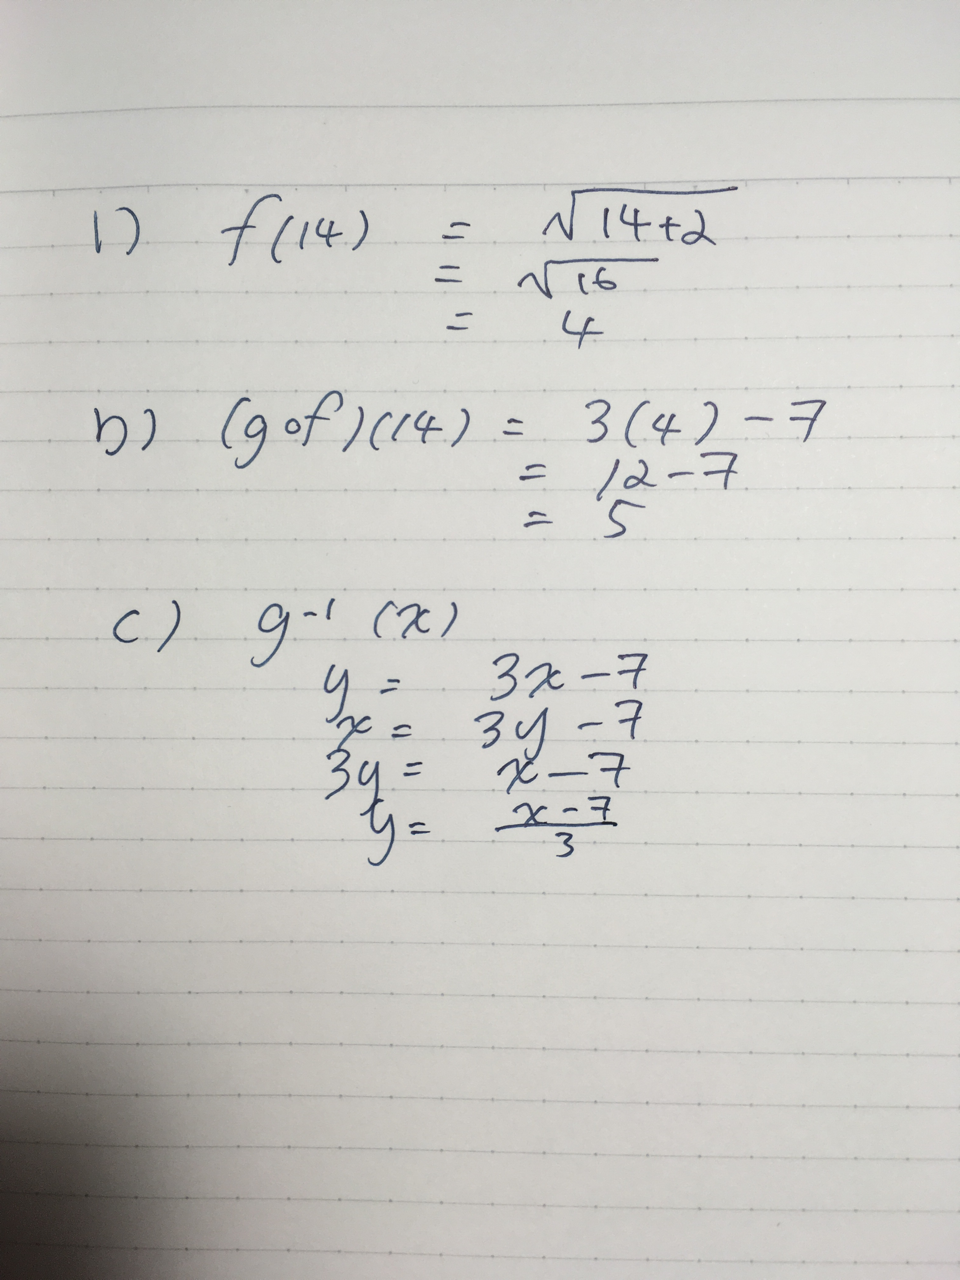 1) f(14) = √14+2
= √16
= 4
b) (g∘f)(14) = 3(4) - 7
= 12 - 7
= 5
c) g⁻¹ (x)
y = 3x - 7
x = 3y - 7
3y = x - 7
y = (x - 7)/3